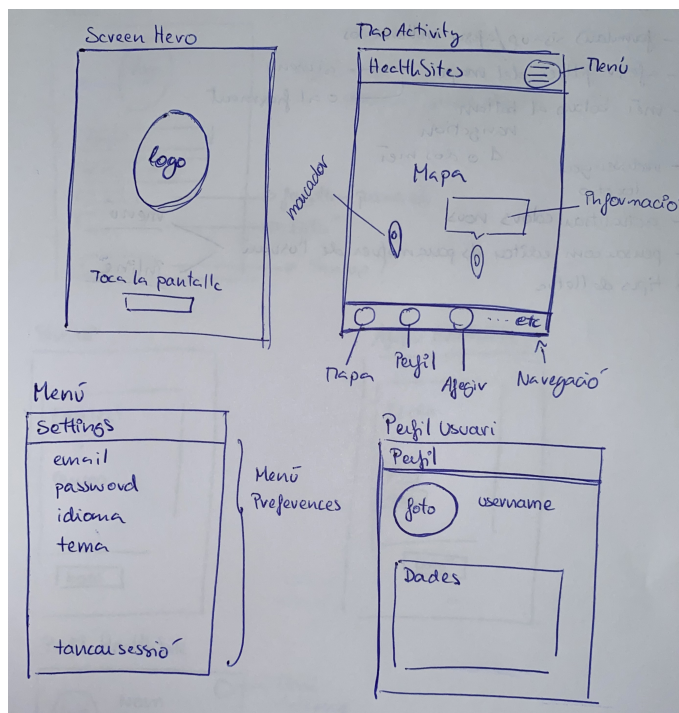 Screen Hero
logo
Toca la pantalla
Map Activity
HealthSites
Menú
Mapa
marcador
Informació
... etc
Mapa
Perfil
Afegir
Navegació
Menú
Settings
email
password
idioma
tema
tancar sessió
Menú
Preferences
Perfil Usuari
Perfil
foto
username
Dades